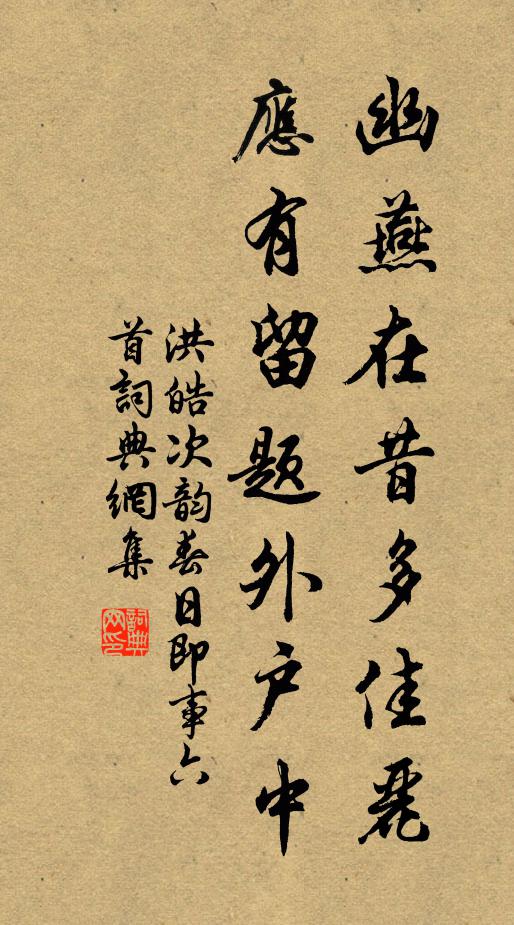 幽燕在昔多佳麗
應有留題外户中
洪皓次韵春日即事六
首詞典網集
詞典
网印